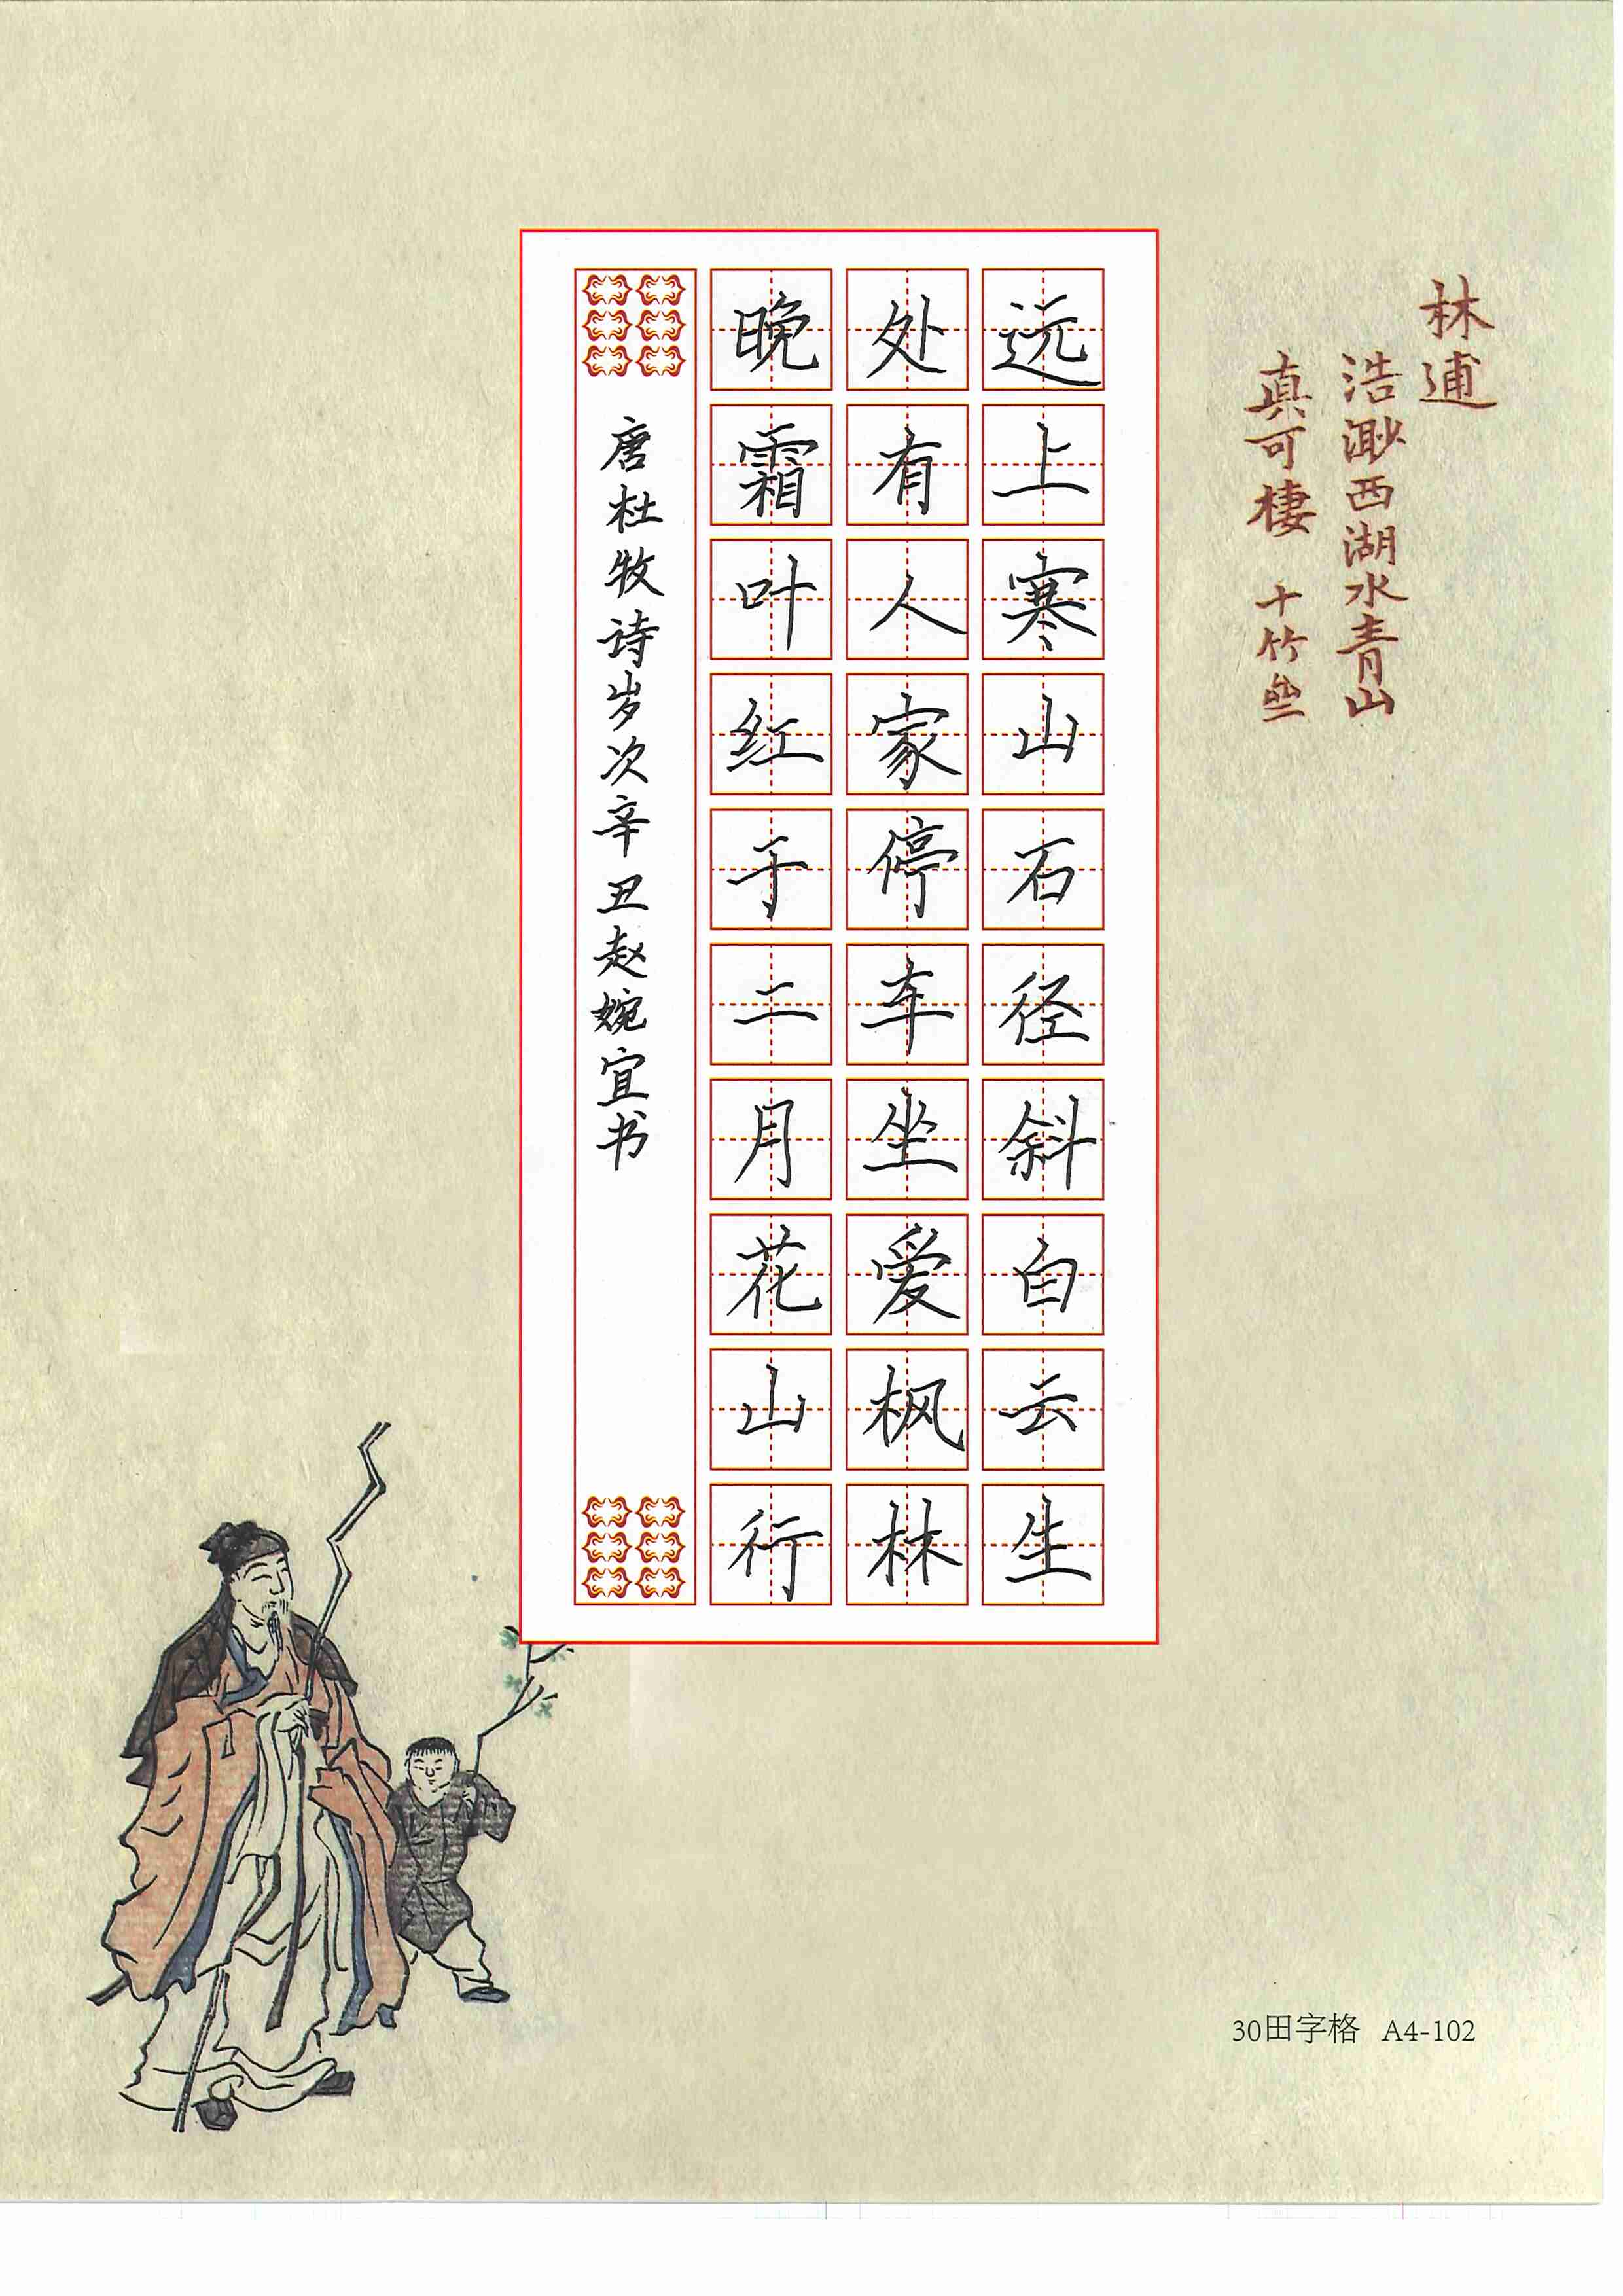 林逋
浩渺西湖水青山
真可棲 十竹
远上寒山石径斜白云生
处有人家停车坐爱枫林
晚霜叶红于二月花山行
唐杜牧诗岁次辛丑赵婉宜书
30田字格 A4-102